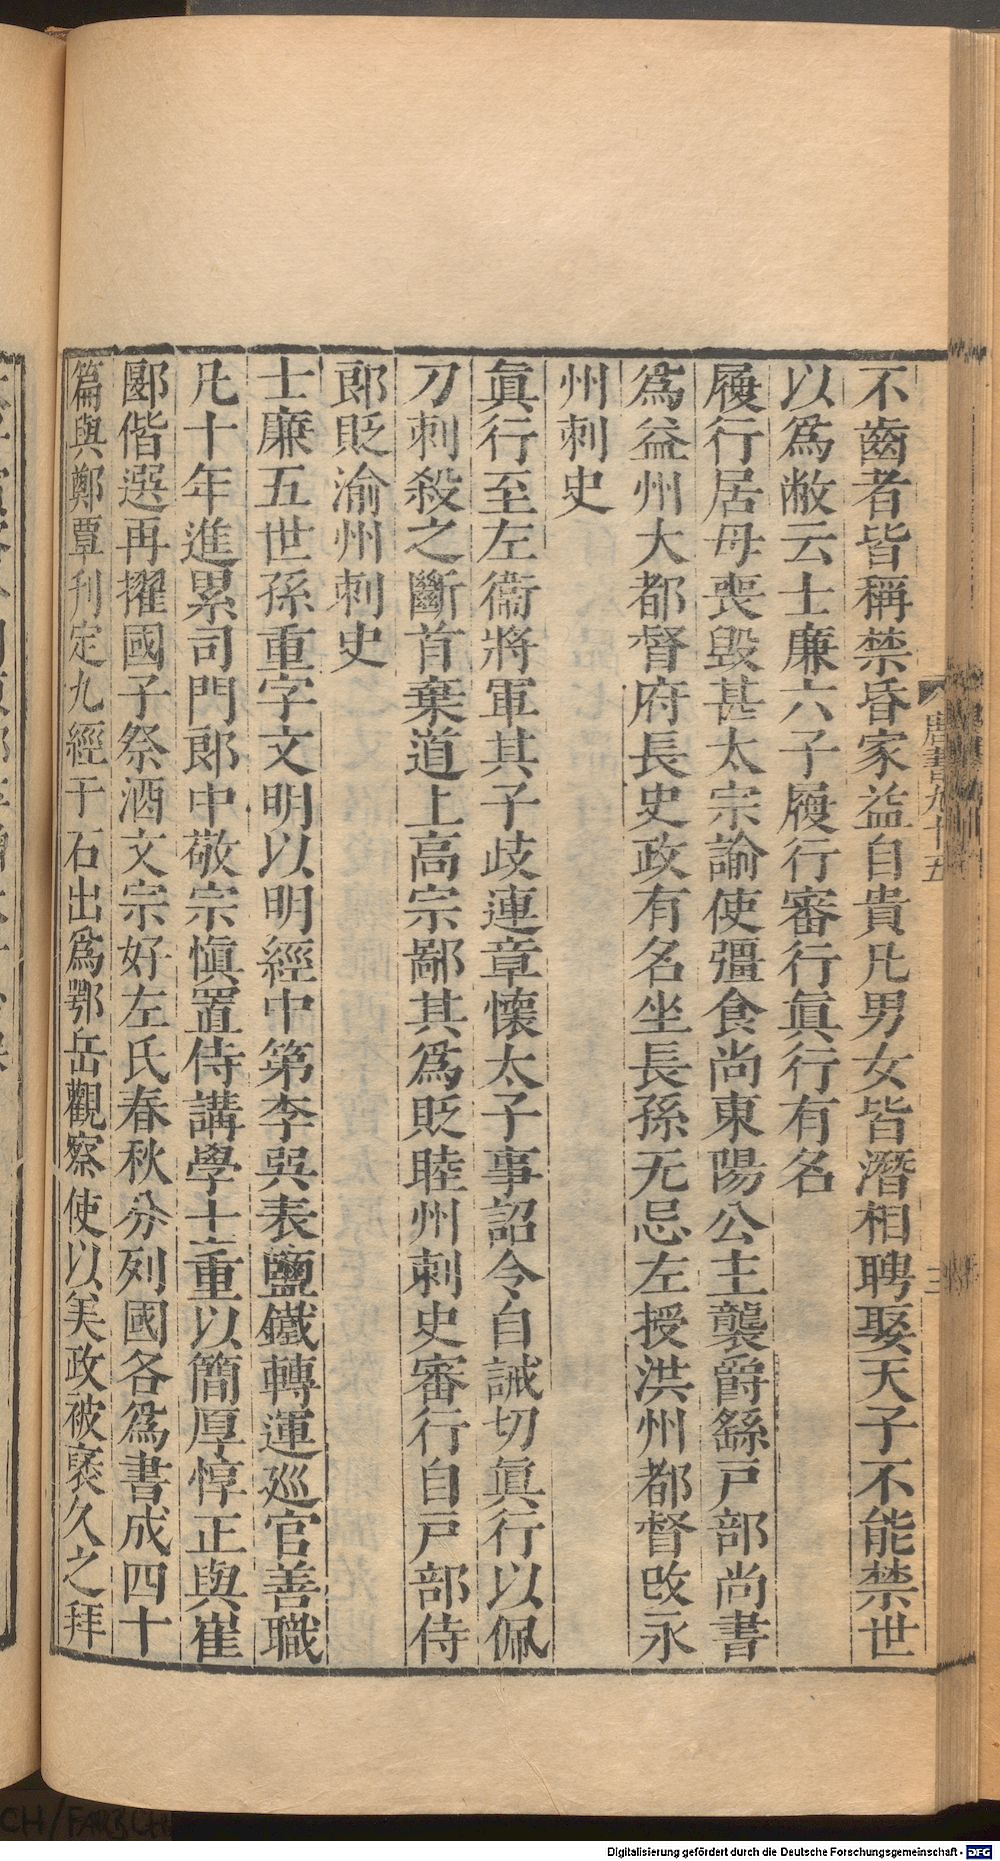 唐書九十五
三
不齒者皆稱禁昏家益自貴凡男女皆潛相聘娶天子不能禁世
以爲敝云士廉六子履行審行眞行有名
履行居母喪毀甚太宗諭使彊食尚東陽公主襲爵繇戶部尚書
爲益州大都督府長史政有名坐長孫无忌左授洪州都督改永
州刺史
眞行至左衞將軍其子歧連章懷太子事詔令自誡切眞行以佩
刀刺殺之斷首棄道上高宗鄙其爲貶睦州刺史審行自戶部侍
郎貶渝州刺史
士廉五世孫重字文明以明經中第李吳表鹽鐵轉運巡官善職
凡十年進累司門郎中敬宗愼置侍講學士重以簡厚惇正與崔
郾偕選再擢國子祭酒文宗好左氏春秋分列國各爲書成四十
篇與鄭覃刋定九經于石出爲鄂岳觀察使以美政被褒久之拜
Digitalisierung gefördert durch die Deutsche Forschungsgemeinschaft - DFG